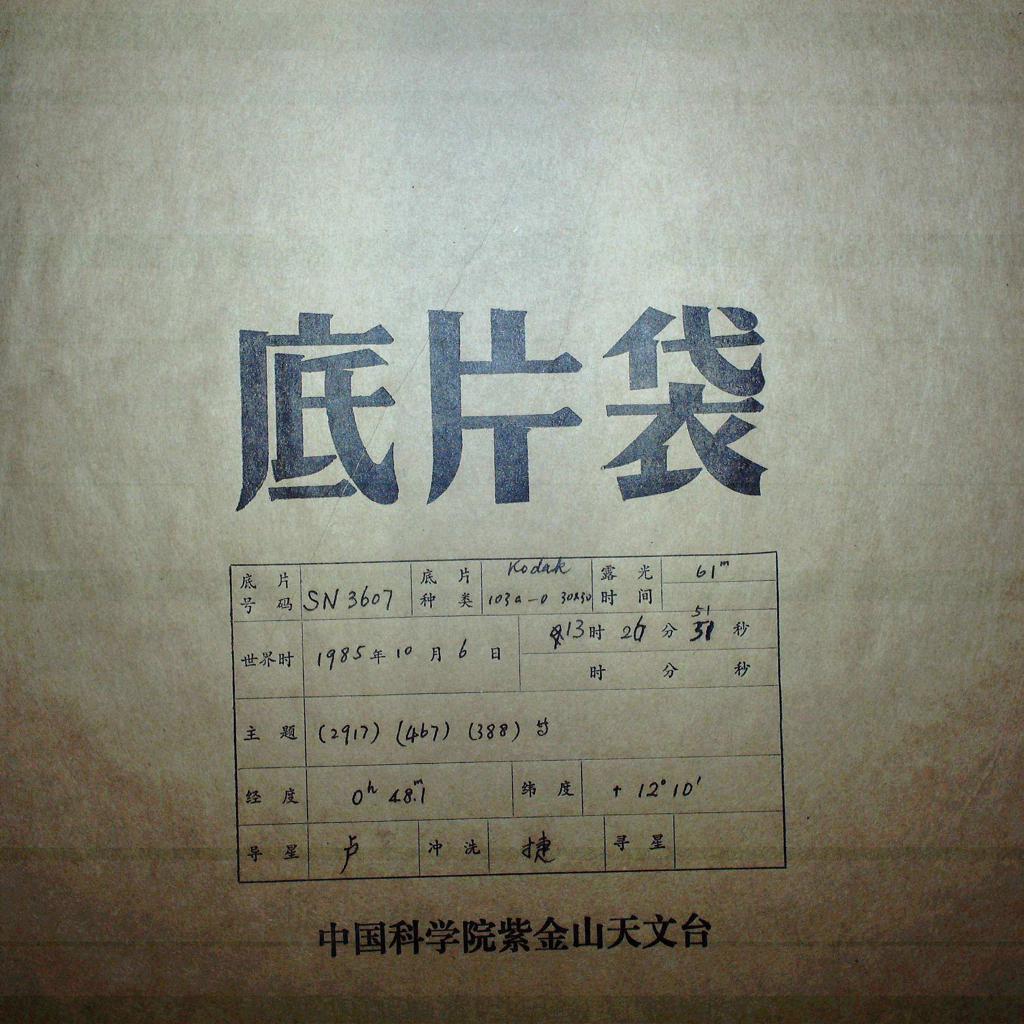 底片袋
底片号码 SN 3607 底片种类 Kodak 103a-O 30x30 露光时间 61ᵐ
世界时 1985年10月6日 13时26分51秒
时 分 秒
主题 (2917) (467) (388) 等
经度 0ʰ 48.ᵐ1 纬度 + 12° 10′
导星 卢 冲洗 捷 寻星
中国科学院紫金山天文台